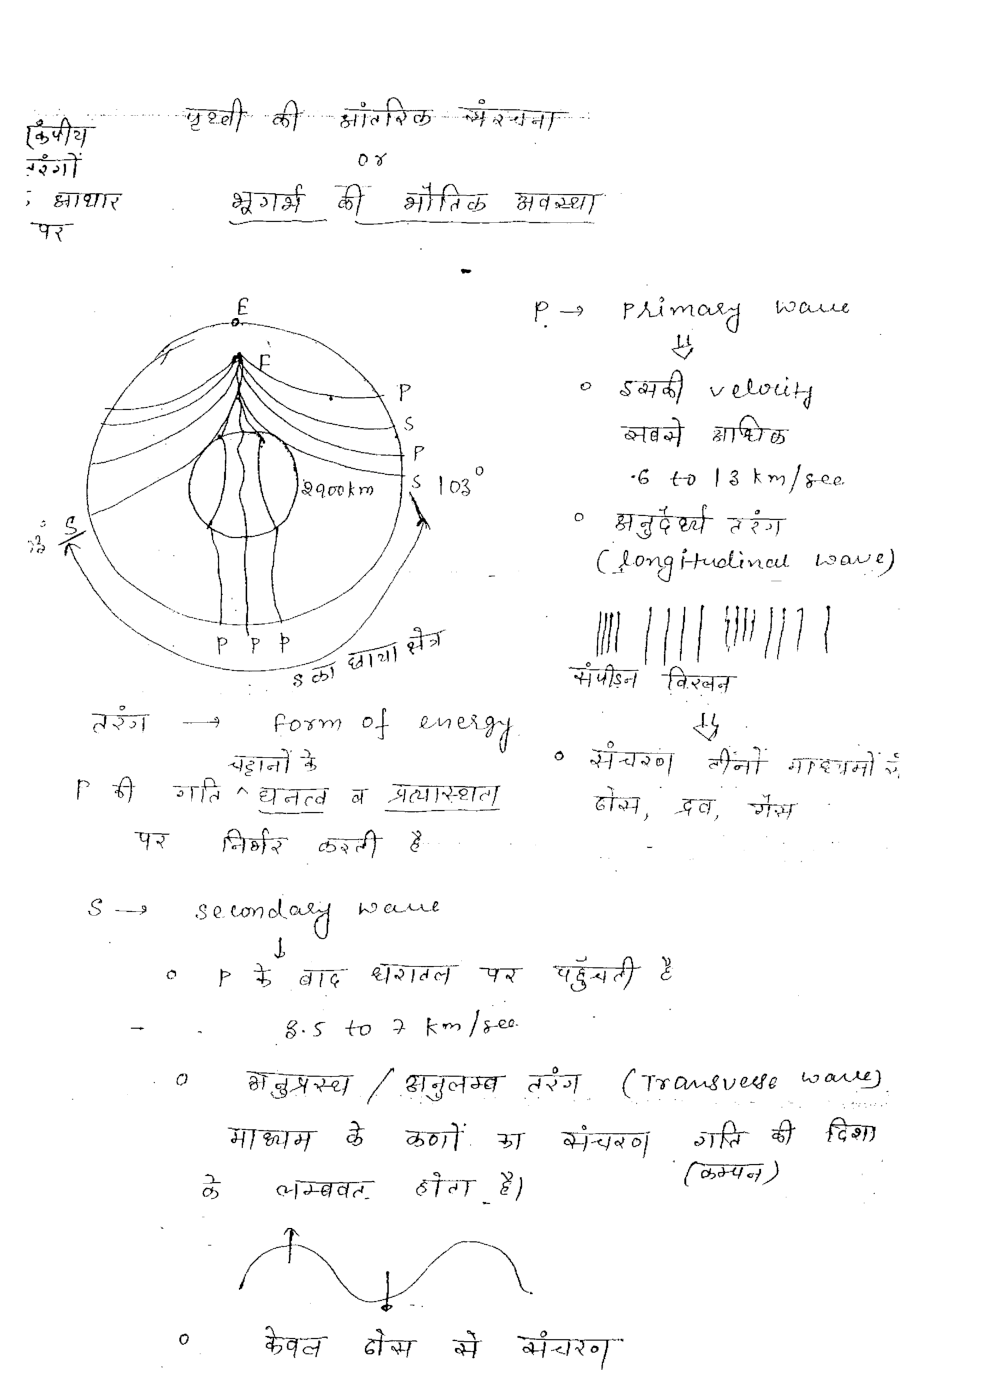 पृथ्वी की आंतरिक संरचना
or
भूगर्भ की भौतिक अवस्था
तरंगों
आधार
पर
E
F
P
S
P
S 103°
2900km
S
P P P
S का छाया क्षेत्र
P → Primary wave
○ इसकी velocity
सबसे अधिक
6 to 13 km/sec
○ अनुदैर्ध्य तरंग
(longitudinal wave)
संपीडन विरलन
○ संचरण तीनों माध्यमों
ठोस, द्रव, गैस
तरंग → form of energy
चट्टानों के
P की गति ^ घनत्व व प्रत्यास्थता
पर निर्भर करती है
S → secondary wave
○ P के बाद धरातल पर पहुँचती है
3.5 to 7 km/sec
○ अनुप्रस्थ / अनुलम्ब तरंग (Transverse wave)
माध्यम के कणों का संचरण गति की दिशा
(कम्पन)
के लम्बवत होता है।
○ केवल ठोस से संचरण